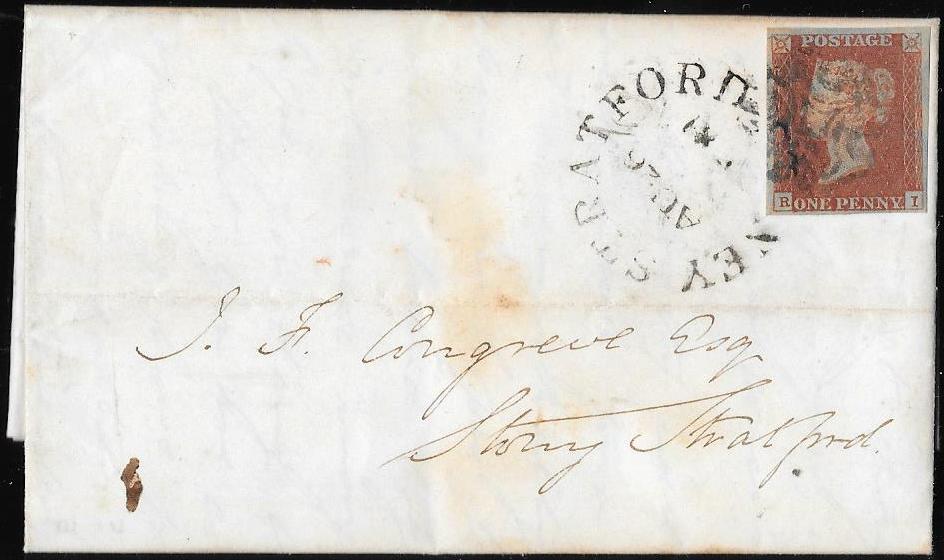 POSTAGE
R ONE PENNY I
STRATFORD
AU 26
J. F. Congreve Esq
Stony Stratford.